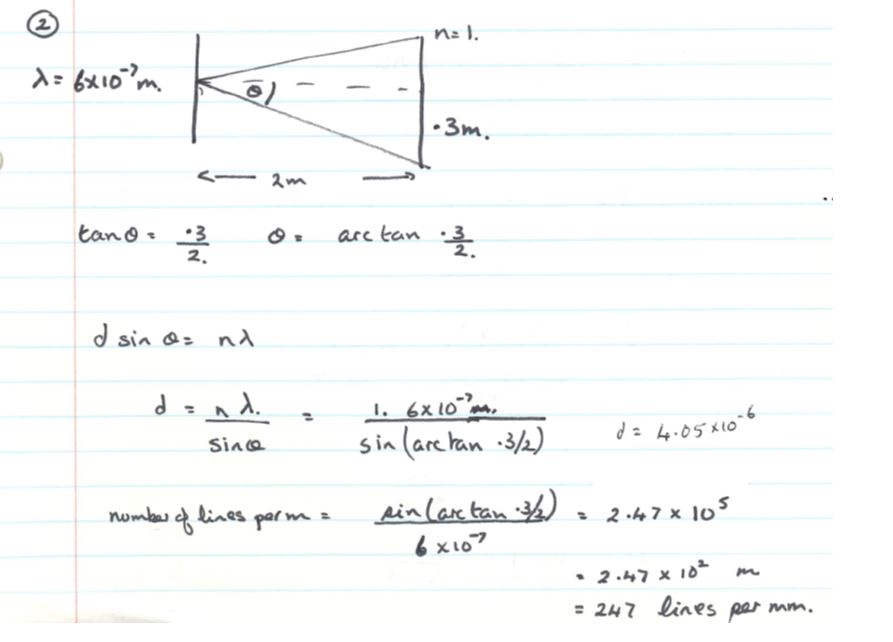 ②
n = 1.
λ = 6x10⁻⁷ m.
θ
·3m.
2m
tan θ = ·3/2. θ = arc tan ·3/2.
d sin θ = nλ
d = nλ./sin θ = 1. 6x10⁻⁷ m./sin(arc tan ·3/2) d = 4.05 x10⁻⁶
number of lines per m = sin(arc tan ·3/2)/6 x10⁻⁷ = 2.47 x 10⁵
= 2.47 x 10² m
= 247 lines per mm.